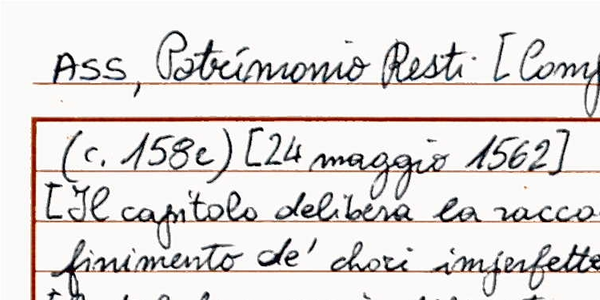 ASS, Patrimonio Resti [Comp
(c. 158r) [24 maggio 1562]
[Il capitolo delibera la racco
finimento de' chori imperfetto